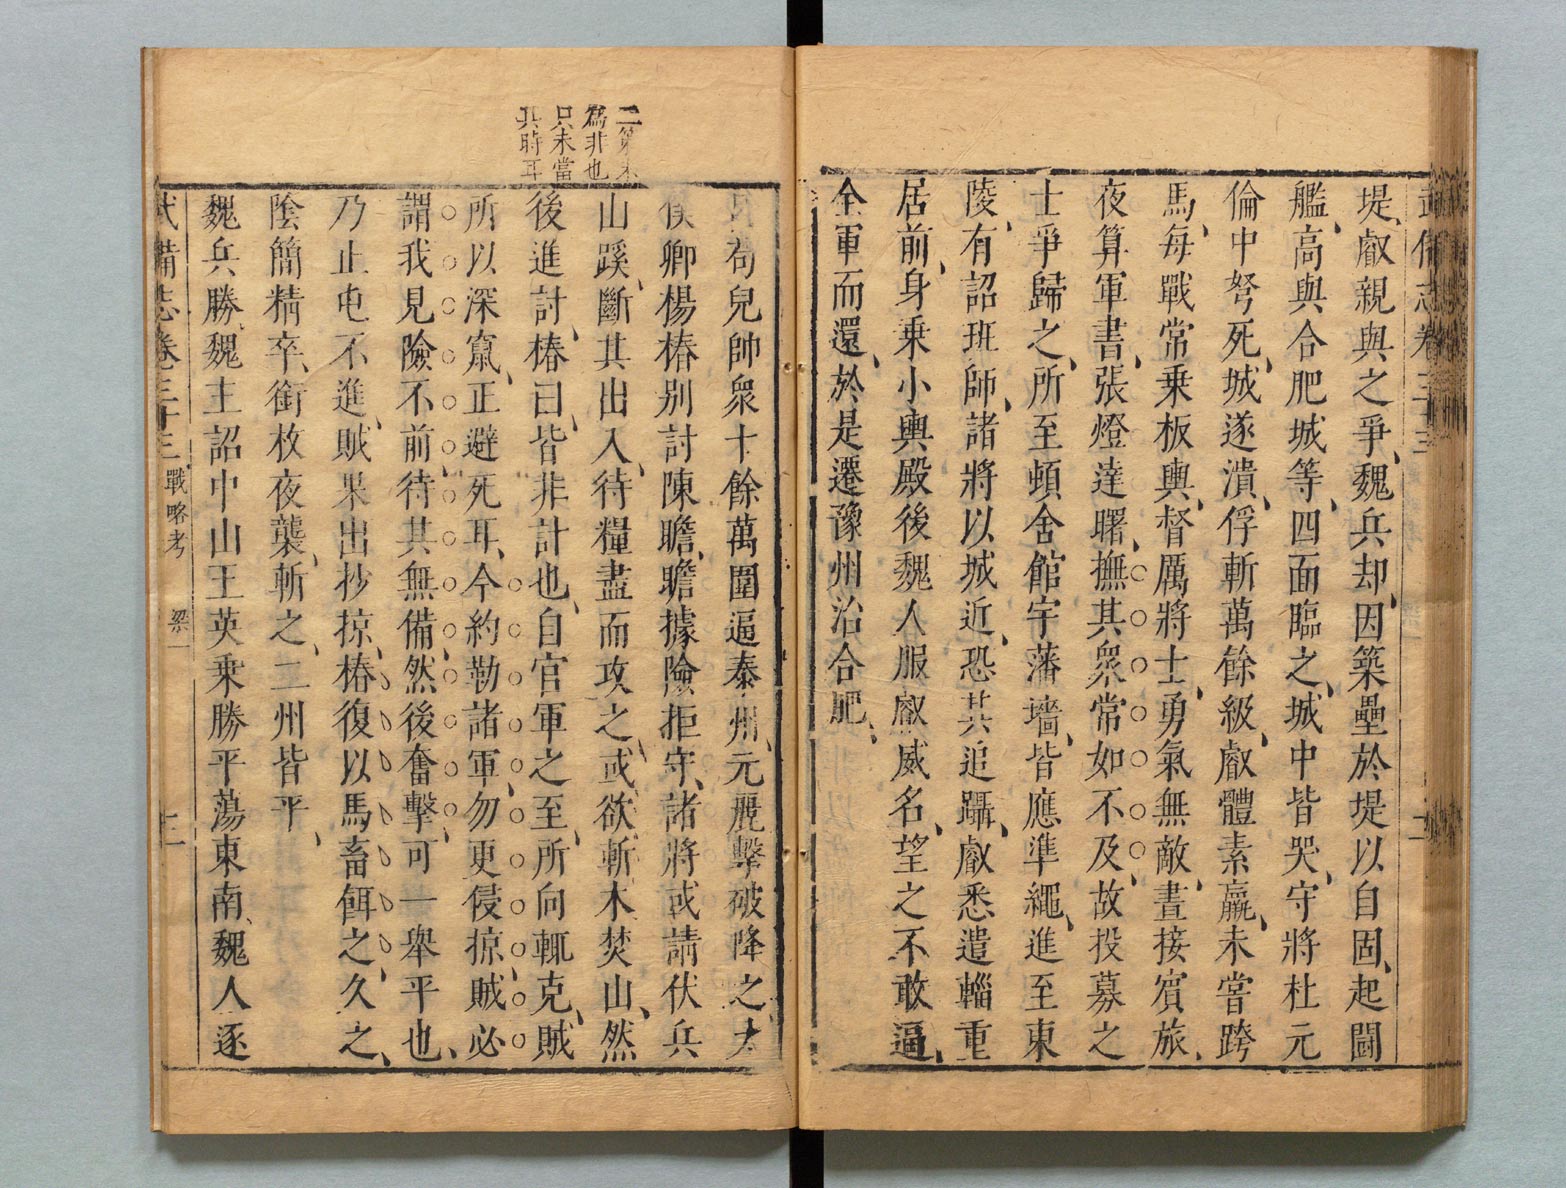 武備志卷三十三
二
堤、叡親與之爭、魏兵却、因築壘於堤以自固、起鬪
艦、高與合肥城等、四面臨之、城中皆哭、守將杜元
倫中弩死、城遂潰、俘斬萬餘級、叡體素羸、未嘗跨
馬、每戰常乗板輿、督厲將士、勇氣無敵、晝接賓旅、
夜算軍書、張燈達曙、撫其衆常如不及、故投募之
士爭歸之、所至頓舍館宇藩墻、皆應準繩、進至東
陵、有詔班師、諸將以城近、恐其追躡、叡悉遣輜重
居前、身乗小輿殿後魏人服叡威名、望之不敢逼、
全軍而還、於是遷豫州治合肥、
苟兒帥衆十餘萬圍逼秦州、元麗擊破降之、太
僕卿楊椿别討陳瞻、瞻據險拒守、諸將或請伏兵
山蹊、斷其出入、待糧盡而攻之、或欲斬木焚山、然
後進討、椿曰、皆非計也、自官軍之至、所向輒克、賊
所以深竄、正避死耳、今約勒諸軍、勿更侵掠、賊必
謂我見險不前、待其無備、然後奮擊、可一舉平也、
乃止屯不進、賊果出抄掠、椿復以馬畜餌之、久之、
陰簡精卒、銜枚夜襲、斬之、二州皆平、
魏兵勝、魏主詔中山王英乗勝平蕩東南、魏人逐
二策未
爲非也
只未當
其時耳
武備志卷三十三 戰略考 梁一
二